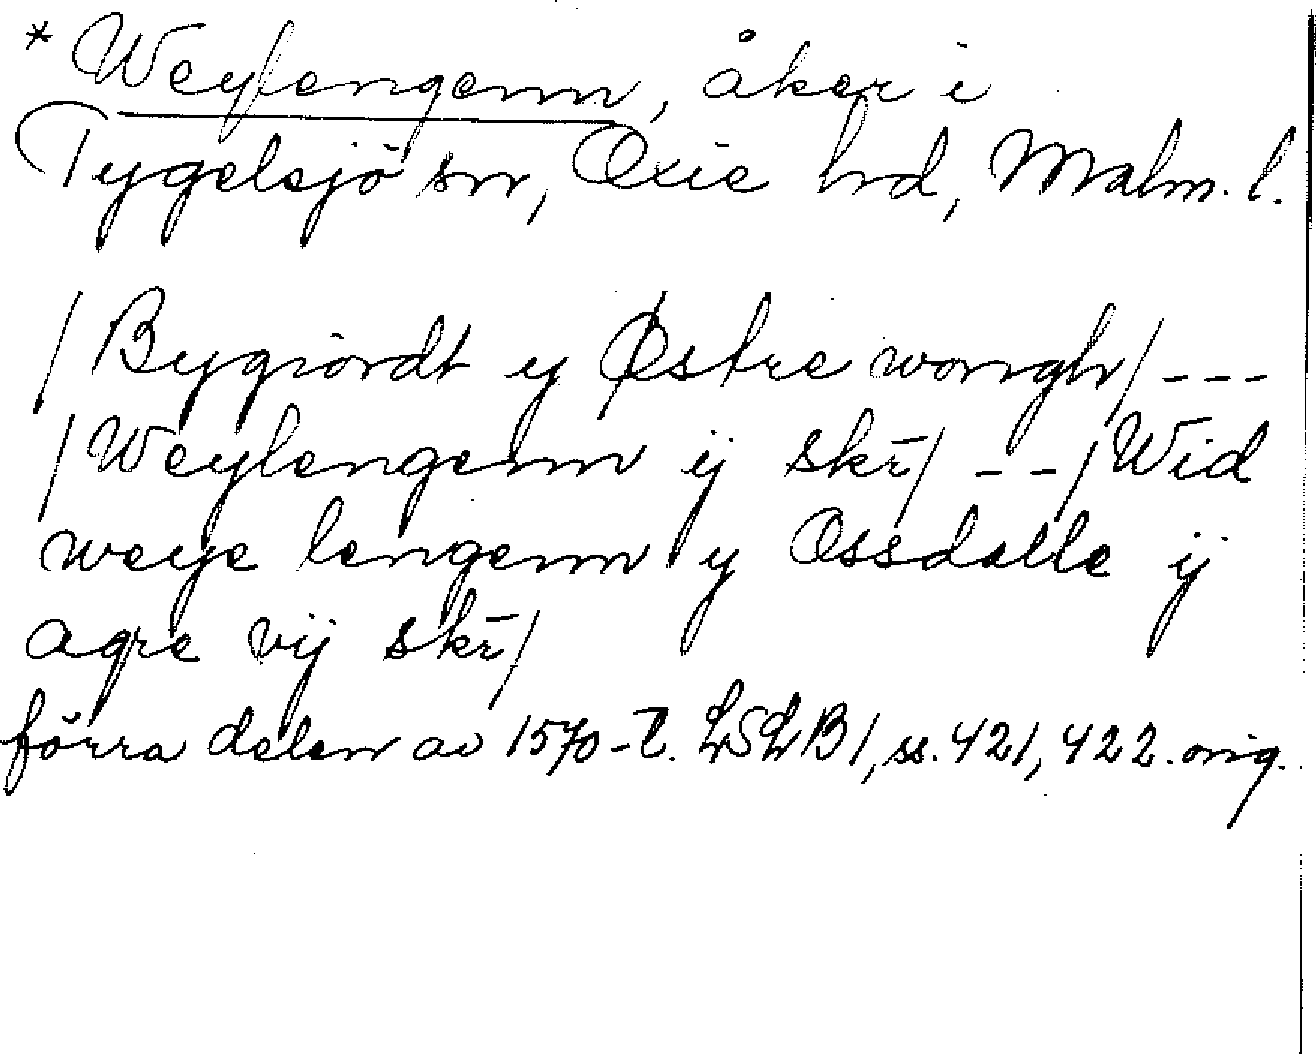 * Weylengenn, åker i
Tygelsjö sn, Oxie hd, Malm. l.
/Bygiördt y Østre wongh/ ---
/Weylengenn ij skr̄/ --/Wid
weye lengenn y Ossdalle ij
agre vij skr̄/
förra delen av 1570-t. LSLB1, ss. 421, 422. orig.